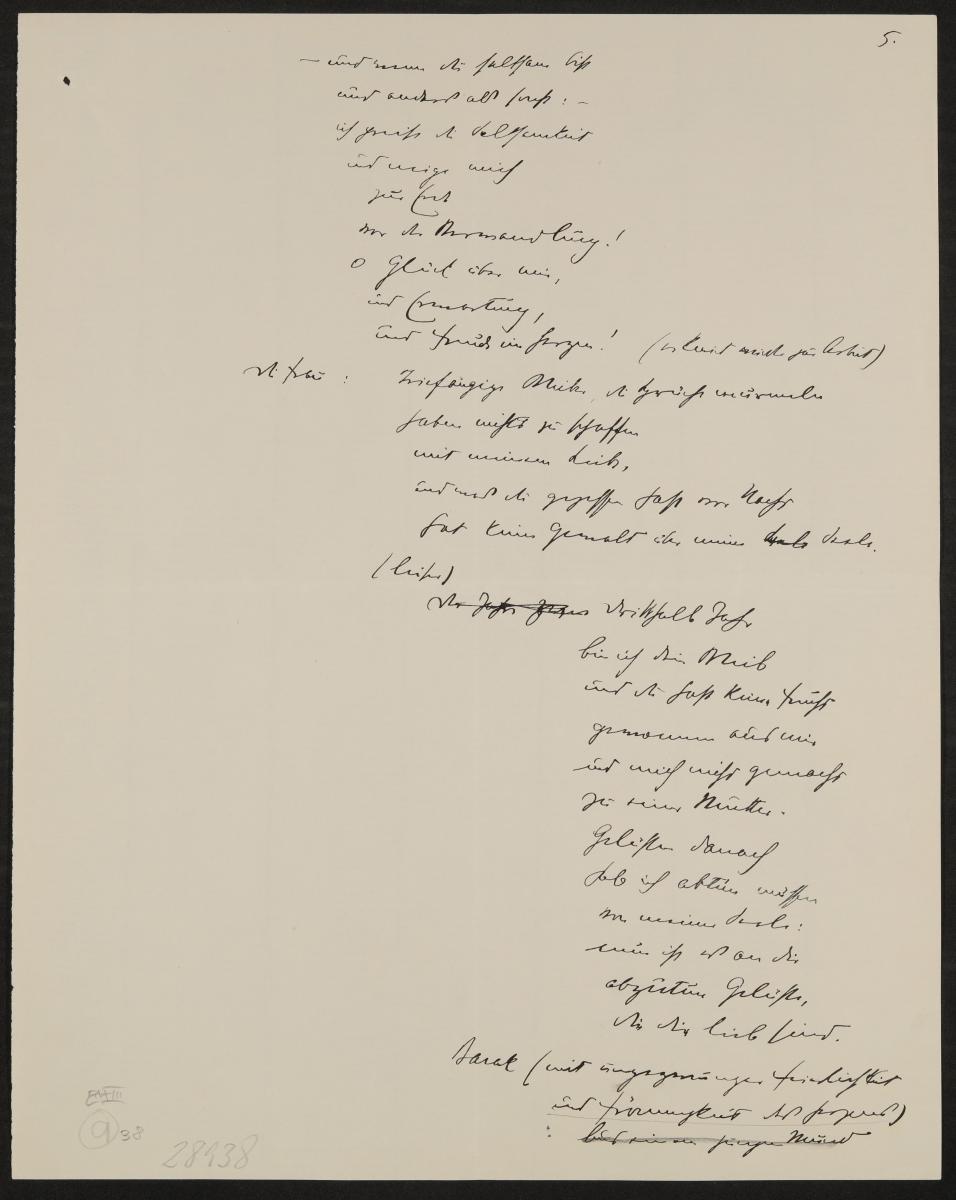 5.
— und wenn du seltsam bist
und anders als sonst: –
ich preise die Seltsamkeit
und neige mich
zur Erde
vor der Verwandlung!
O Glück über mir,
und Erwartung,
und Freude im Herzen! (er kniet nieder zur Arbeit)
die Frau: Triefäugige Weiber, die Sprüche murmeln
haben nichts zu schaffen
mit meinem Leib,
und was du gegessen hast vor Nacht
hat keine Gewalt über meine Seele.
(leiser)
dritthalb Jahr
bin ich dein Weib
und du hast keine Frucht
gewonnen aus mir
und mich nicht gemacht
zu einer Mutter.
Gelüsten danach
hab ich abtun müssen
von meiner Seele:
nun ist es an dir
abzutun Gelüste,
die dir lieb sind.
Barak (mit ungezwungener Feierlichkeit
und Frömmigkeit des Herzens)
: Aus einem jungen Mund
9 38
28938